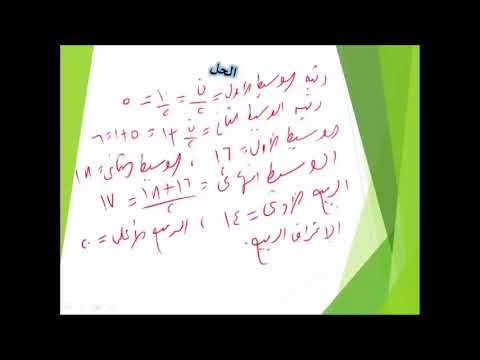 الحل
رتبة الوسيط الأول = ن/٢ = ١٠/٢ = ٥
رتبة الوسيط الثاني = ن/٢ + ١ = ٥ + ١ = ٦
الوسيط الأول = ١٦ ، الوسيط الثاني = ١٨
الوسيط النهائي = ١٦ + ١٨ / ٢ = ١٧
الربيع الأدنى = ١٤ ، الربيع الأعلى = ٢٠
الانحراف الربيعي